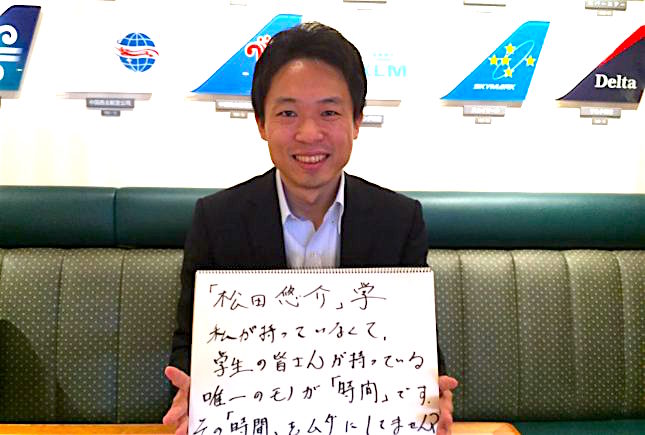 KLM
SKYMARK
Delta
「松田悠介」学
私が持っていなくて、
学生の皆さんが持っている
唯一のモノが「時間」です。
その「時間」をムダにしてません?